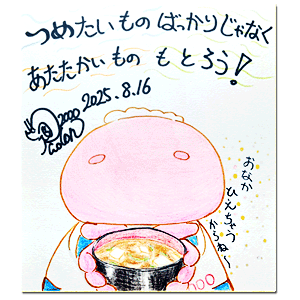 つめたいものばっかりじゃなく
あたたかいもの もとろう!
2025.8.16
おなか
ひえちゃう
からね〜